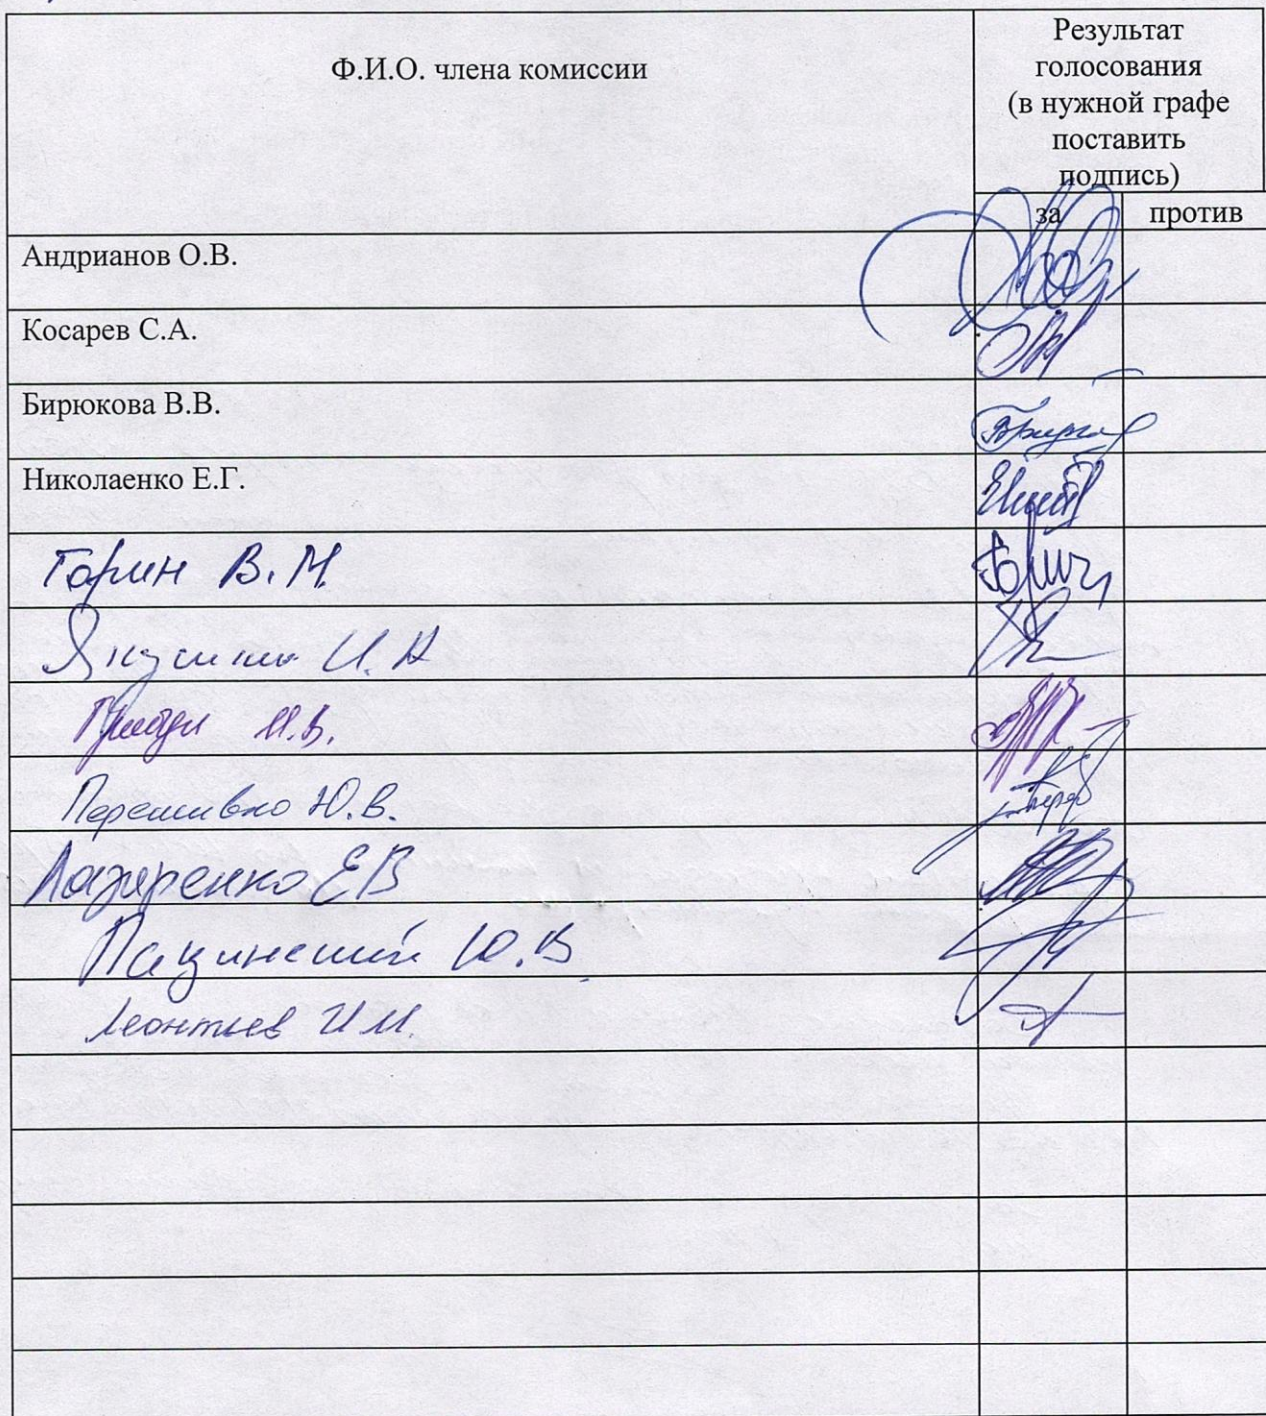 Ф.И.О. члена комиссии
Результат
голосования
(в нужной графе
поставить
подпись)
за
против
Андрианов О.В.
Косарев С.А.
Бирюкова В.В.
Николаенко Е.Г.
Горин В.М.
И.А
И.В.
Перешивко Ю.В.
Лазаренко ЕВ
Ю.В.
Леонтьев И.И.